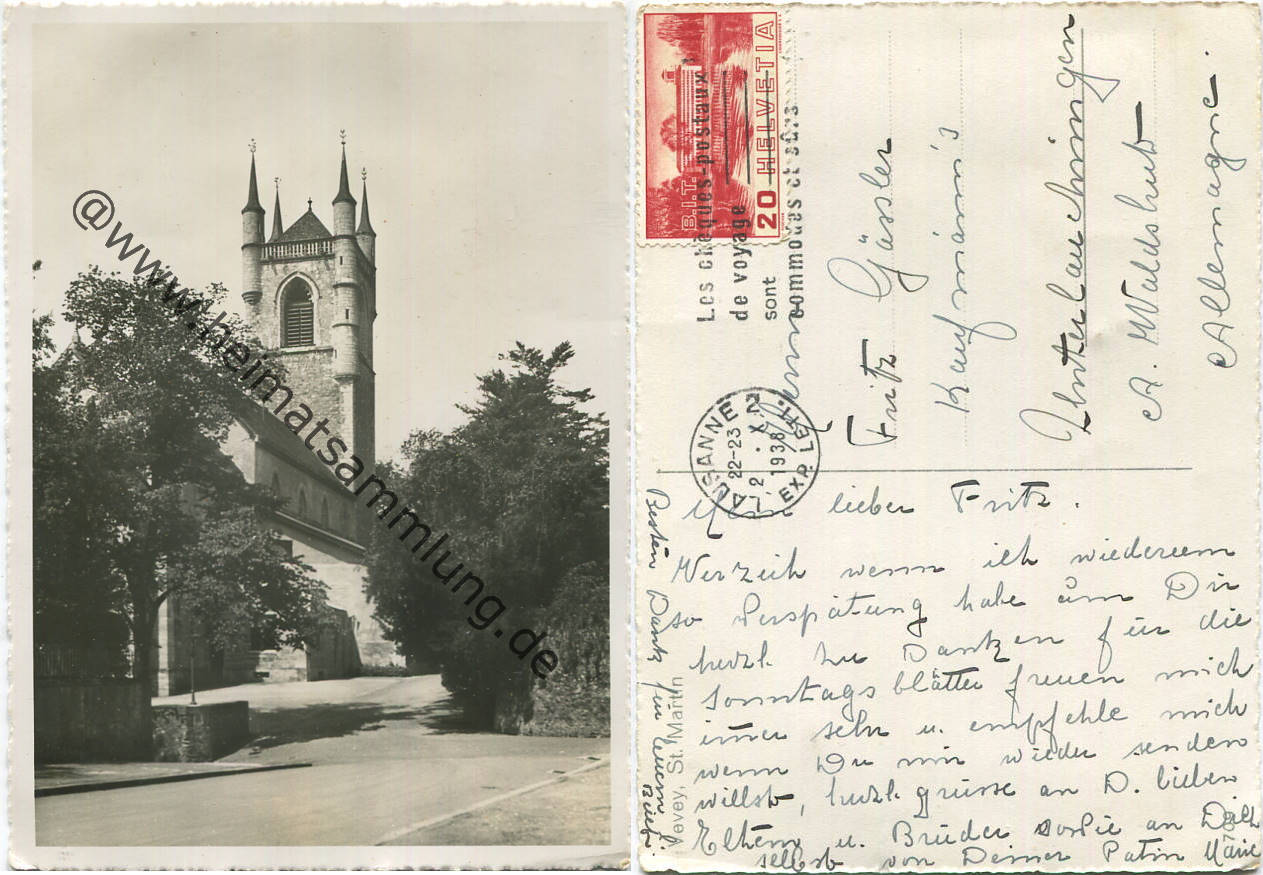 @www.heimatsammlung.de
HELVETIA
20
B.I.T.
Les chèques-postaux
de voyage
sont
commodes et sûrs
LAUSANNE
22-23
2.X
1938
EXP. LETT.
Fritz Gässler
Kaufmann's
A. Waldshut
Allemagne.
Mein lieber Fritz.
Verzeih wenn ich wiederum
so Verspätung habe um Dir
herzl. zu Danken für die
Sonntagsblätter freuen mich
immer sehr u. empfehle mich
wenn Du mir wieder senden
willst, herzl. grüsse an D. lieben
Eltern u. Brüder sowie an Dich
selbst von Deiner Patin Marie
Besten Dank für Euern
Brief.
Vevey, St. Martin